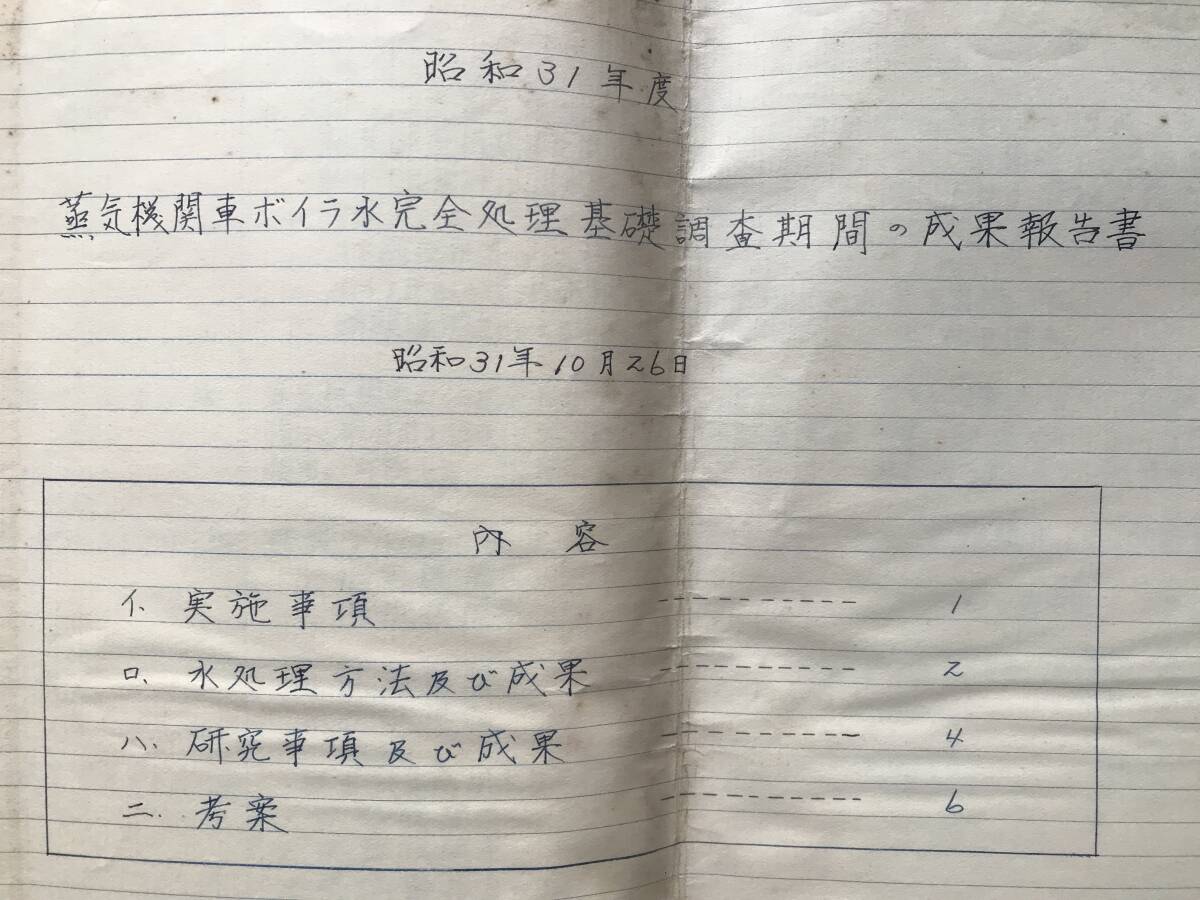 昭和31年度
蒸気機関車ボイラ水完全処理基礎調査期間の成果報告書
昭和31年10月26日
内 容
イ. 実施事項 ---------- 1
ロ. 水処理方法及び成果 ---------- 2
ハ. 研究事項及び成果 ---------- 4
二. 考案 ---------- 6